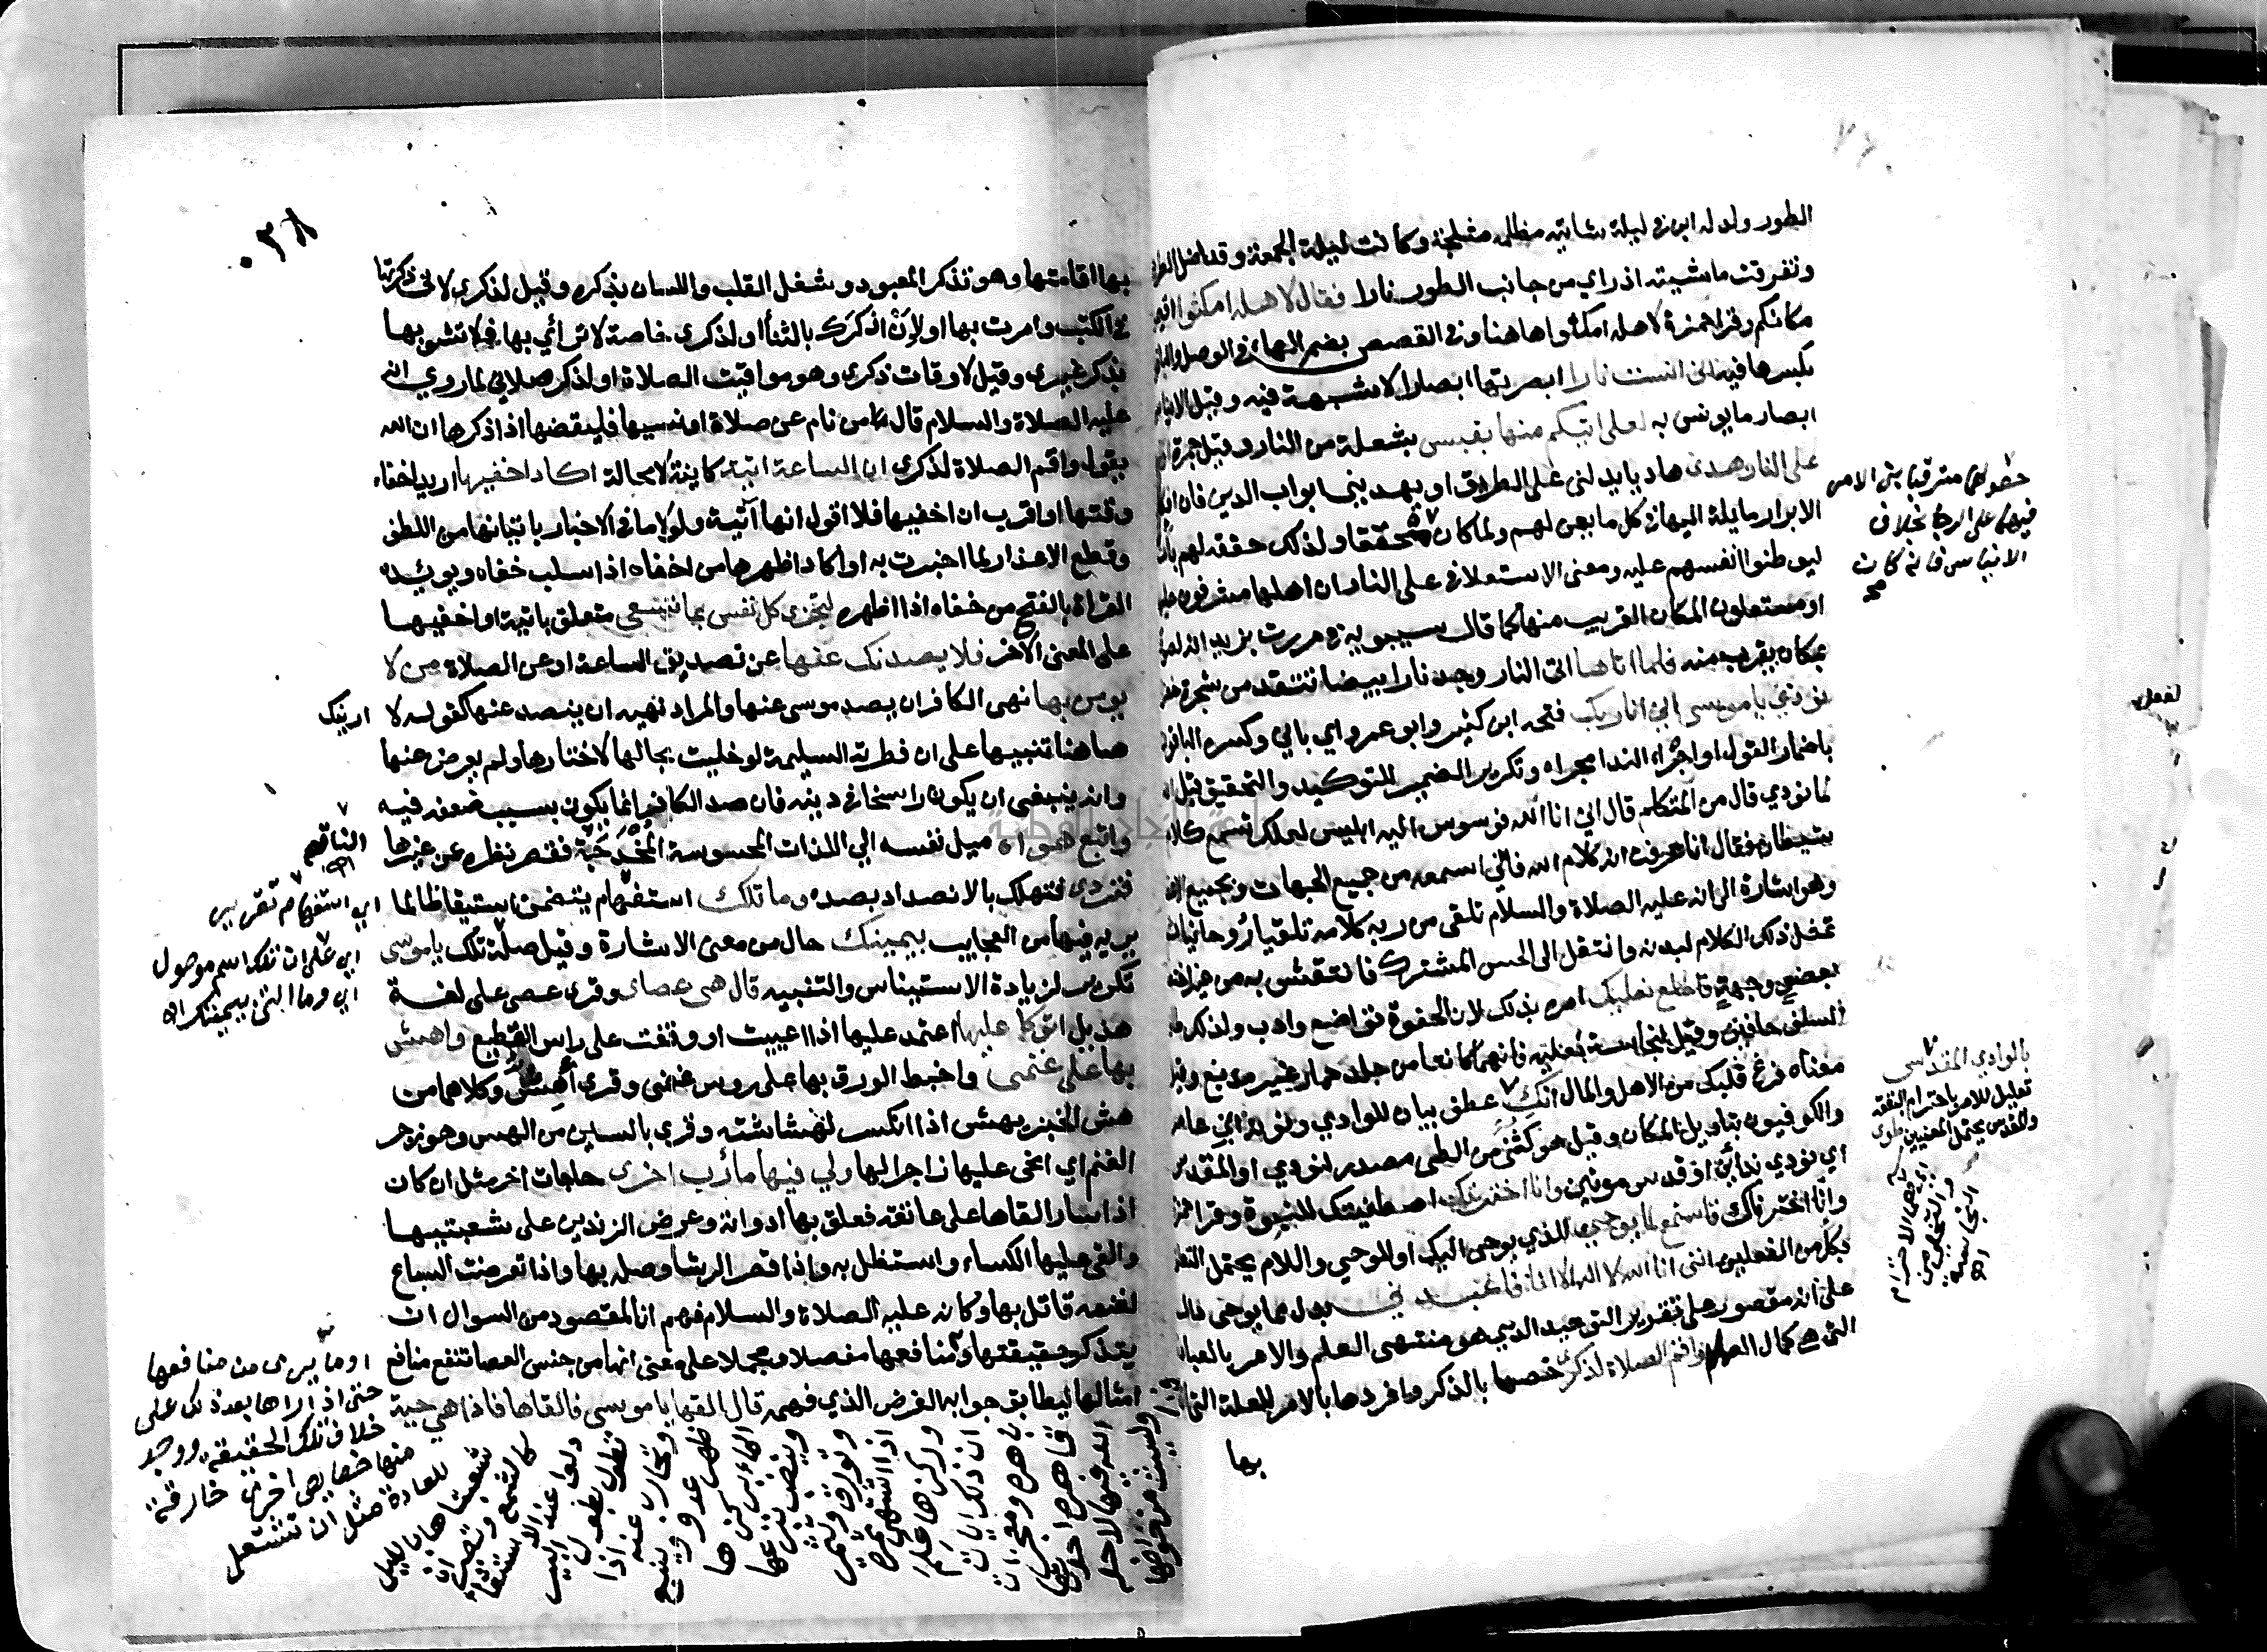 الطور ولد له ابن في ليلة شاتيه مظلمه مثلجة وكانت ليلة الجمعة وقد اضل الطريق
وتفرقت ماشيته اذ راي من جانب الطور نارا فقال لاهله امكثوا اقيموا
مكانكم وقرا حمزة لاهله امكثوا هاهنا وفي القصص بضم الهاء في الوصل والباقون
بكسرها فيه اني انست نارا ابصرتها ابصارا لا شبهة فيه وقيل الايناس
ابصار ما يونس به لعلي اتيكم منها بقبس بشعلة من النار وقيل جمرة او اجد
على النار هدى هاديا يدلني على الطريق او يهديني ابواب الدين فان افكار
الابرار مايلة اليها في كل ما يعن لهم ولما كان محققا ولذلك حققه لهم بان
ليوطنوا انفسهم عليه ومعنى الاستعلا في على النار ان اهلها مشرفون عليها
او مستعلون المكان القريب منها كما قال سيبويه في مررت بزيد انه لصوق
بمكان يقرب منه فلما اتاها اتى النار وجد نارا بيضا تتقد من شجرة خضرا
نودي يا موسى اني انا ربك فتحه ابن كثير وابو عمرو اي باني وكسره الباقون
باضمار القول او اجراء الندا مجراه وتكرير الضمير للتوكيد والتحقيق قيل انه
لما نودي قال من المتكلم قال اني انا الله فوسوس اليه ابليس لعلك تسمع كلام
شيطان فقال انا عرفت انه كلام الله فاني اسمعه من جميع الجهات وبجميع الاعضا
وهو اشارة الى انه عليه الصلاة والسلام تلقى من ربه كلامه تلقيا روحانيا ثم
تمثل ذلك الكلام لبدنه وانتقل الى الحس المشترك فانتقش به من غير اختصاص
بعضو وجهة فاخلع نعليك امره بذلك لان الحفوة تواضع وادب ولذلك طاف
السلف حافين وقيل لنجاسة نعليه فانهما كانتا من جلد حمار غير مدبوغ وقيل
معناه فرغ قلبك من الاهل والمال انك عطف بيان للوادي ونونه ابن عامر
والكوفيون بتاويل المكان وقيل هو كثنى من الطي مصدر لنودي او المقدس
اي نودي ندائين او قدس مرتين وانا اخترتك اصطفيتك للنبوة وقرا حمزة
وانا اخترناك فاستمع لما يوحى للذي يوحى اليك او للوحي واللام يحتمل التعلق
بكل من الفعلين انني انا الله لا اله الا انا فاعبدني بدل مما يوحى دال
على انه مقصور على تقرير التوحيد الذي هو منتهى العلم والامر بالعبادة
التي هي كمال العمل واقم الصلاة لذكري خصها بالذكر وافردها بالامر للعلة التي اناط
بها
حصولهما مترقبا بني الامر
فيهما على الرجا بخلاف
الايناس فانه كان
بالوادي المقدس
تعليل للامر باحترام البقعة
والمقدس يحتمل المعنيين طوى
٠٣٨
بها اقامتها وهو تذكر المعبود وشغل القلب واللسان بذكره وقيل لذكري لاني ذكرتها
في الكتب وامرت بها او لان اذكرك بالثنا او لذكري خاصة لا ترائي بها فلا تشوبها
بذكر غيري وقيل لاوقات ذكري وهو مواقيت الصلاة او لذكر صلاتي لما روي انه
عليه الصلاة والسلام قال من نام عن صلاة او نسيها فليقضها اذا ذكرها ان الله
يقول واقم الصلاة لذكري ان الساعة اتية كاينة لا محالة اكاد اخفيها اريد اخفاء
وقتها او اقرب ان اخفيها فلا اقول انها آتية ولولا ما في الاخبار باتيانها من اللطف
وقطع الاعذار لما اخبرت به او اكاد اظهرها من اخفاه اذا سلب خفاه ويويده
القراة بالفتح من خفاه اذا اظهره لتجزى كل نفس بما تسعى متعلق باتية او اخفيها
على المعنى الاخر فلا يصدنك عنها عن تصديق الساعة او عن الصلاة من لا
يومن بها نهى الكافر ان يصد موسى عنها والمراد نهيه ان ينصد عنها كقولهم لا ارينك
هاهنا تنبيها على ان فطرته السليمة لو خليت بحالها لاختارها ولم يعرض عنها
وانه ينبغي ان يكون راسخا في دينه فان صد الكافر انما يكون بسبب ضعفه فيه
واتبع هواه ميل نفسه الي اللذات المحسوسة المخدجة فقصر نظره عن غيرها
فتردى فتهلك بالانصداد بصده وما تلك استفهام يتضمن استيقاظا لما
يريه فيها من العجايب بيمينك حال من معنى الاشارة وقيل صلة تلك يا موسى
تكرير لزيادة الاستيناس والتنبيه قال هي عصاي وقري عصي على لغة
هذيل اتوكا عليها اعتمد عليها اذا اعييت او وقفت على راس القطيع واهش
بها على غنمي واخبط الورق بها على روس غنمي وقري اهش وكلاهما من
هش الخبز يهش اذا انكسر لهشاشته وقري بالسين من الهس وهو زجر
الغنم اي انحى عليها زاجرا لها ولي فيها مارب اخرى حاجات اخر مثل ان كان
اذا سار القاها على عاتقه فعلق بها ادواته وعرض الزندين على شعبتيها
والقى عليها الكساء واستظل به واذا قصر الرشا وصله بها واذا تعرضت السباع
لغنمه قاتل بها وكانه عليه الصلاة والسلام فهم ان المقصود من السوال ان
يتذكر حقيقتها ومنافعها مفصلا ومجملا على معنى انها من جنس العصا تنفع منافع
امثالها ليطابق جوابه الغرض الذي فهمه قال القها يا موسى فالقاها فاذا هي حية
الناقصه
اي استفهام تقرير
اي على ان تلك اسم موصول
اي وما التي بيمينك اه
او ما يرى من منافعها
حتى اذا راها بعد ذلك على
خلاف تلك الحقيقة ووجد
منها خصايص اخرى خارقة
للعادة مثل ان تشتعل
شعبتاها بالليل
كالشمع وتصير
دلوا عند الاستقاء
وتطول بطول البير
وتحارب عنه اذا
ظهر عدو وينبع
الماء بركزها
وينضب بنزعها
وتورق وتثمر
اذا اشتهى ثمرة
وركزها علم
ان ذلك ايات
باهرة ومعجزات
قاهرة احدثها
الله فيها لاجله
وليست من خواصها